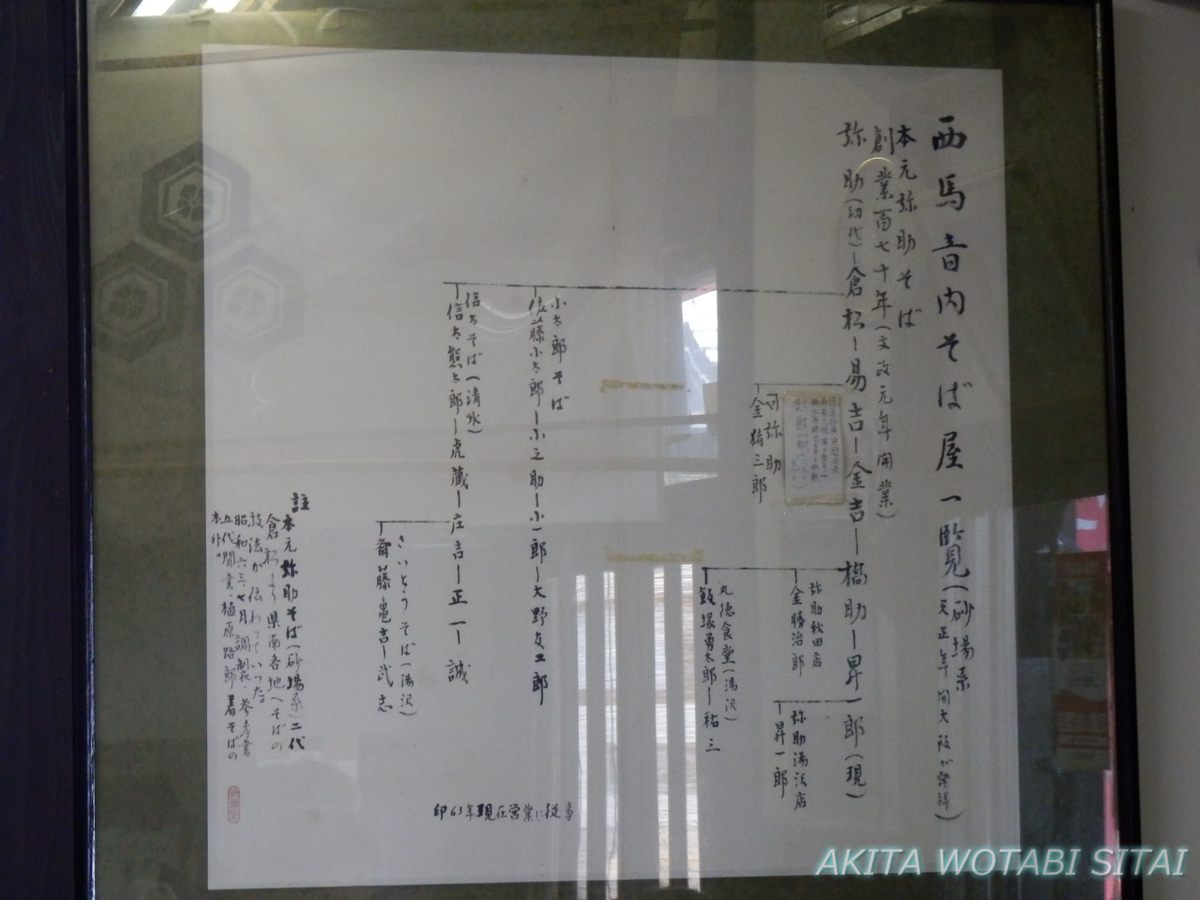 西馬音内そば屋一覧(砂場系 天正年間大阪が発祥)
本元弥助そば
創業百七十年(文政元年開業)
弥助(初代)ー倉松ー易吉ー金吉ー橋助ー昇一郎(現)
弥助湯沢店
昇一郎
弥助秋田店
金勝治郎
丸徳食堂(湯沢)
飯塚勇太郎ー祐三
弥助
金猪三郎
小太郎そば
佐藤小太郎ー小之助ー小一郎ー大野友工郎
信太そば(清水)
信太熊太郎ー虎蔵ー庄吉ー正一ー誠
さいとうそば(湯沢)
斉藤亀吉ー武志
印63年現在営業に従事
註
本元弥助そば(砂場系)二代
倉松より県南各地(そばの
技法が伝わっていった
昭和六三、七月調製、参考書
五代聞書、植原路郎著そばの
本外"
AKITA WOTABI SITAI